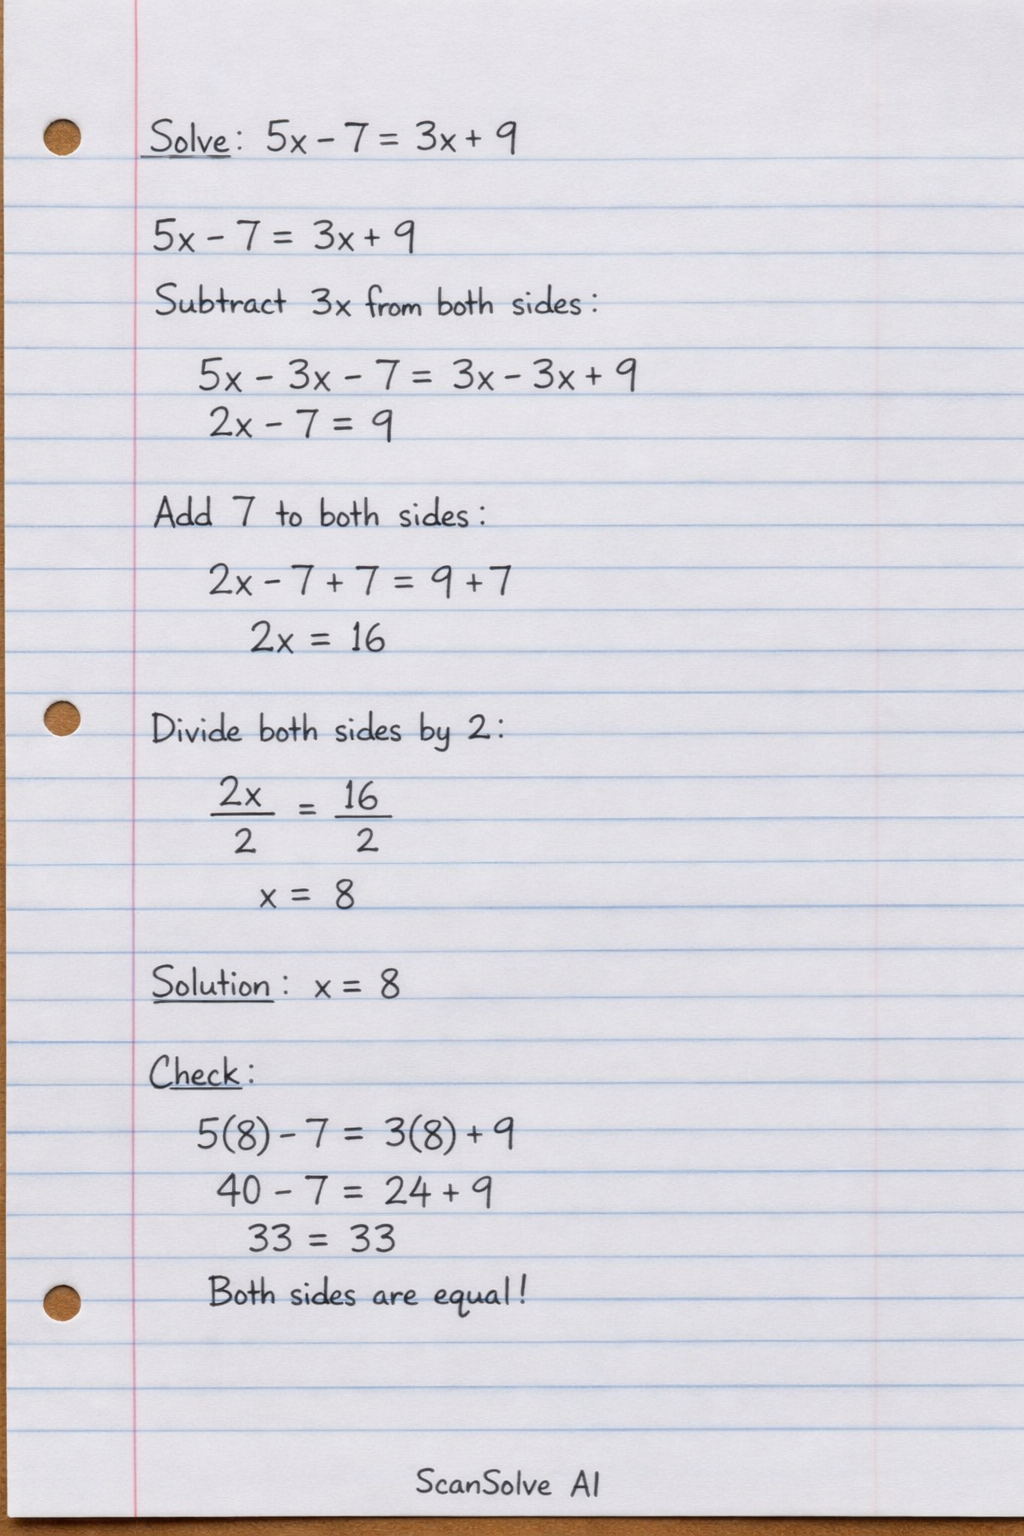 Solve: 5x - 7 = 3x + 9
5x - 7 = 3x + 9
Subtract 3x from both sides:
5x - 3x - 7 = 3x - 3x + 9
2x - 7 = 9
Add 7 to both sides:
2x - 7 + 7 = 9 + 7
2x = 16
Divide both sides by 2:
2x/2 = 16/2
x = 8
Solution: x = 8
Check:
5(8) - 7 = 3(8) + 9
40 - 7 = 24 + 9
33 = 33
Both sides are equal!
ScanSolve AI